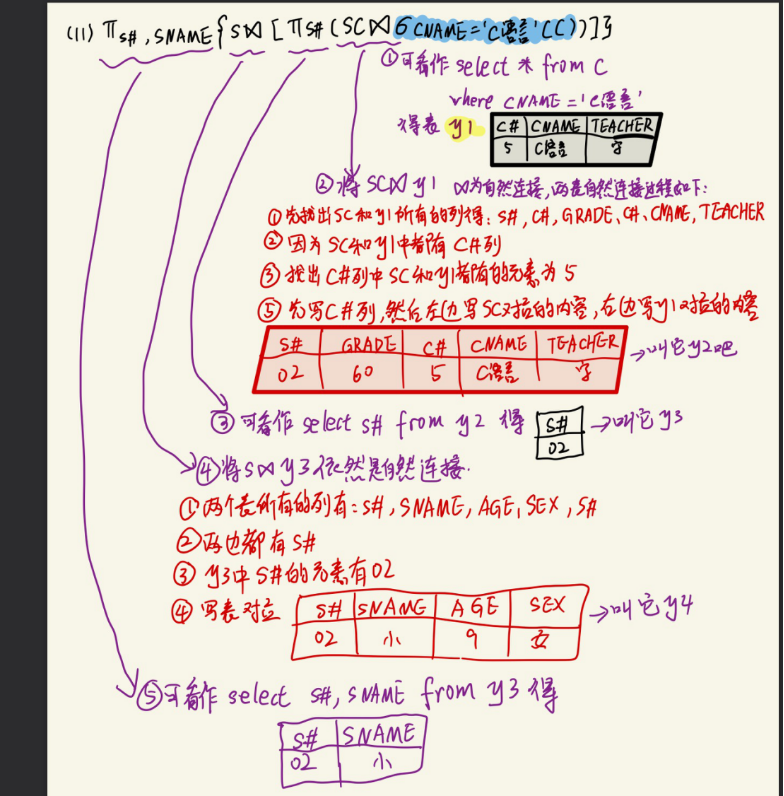 (11) π S#,SNAME{S⋈[πS#(SC⋈σCNAME='C语言'(C))]}
①可看作 select * from C
where CNAME='C语言'
得表 y1
C# CNAME TEACHER
5 C语言
②将SC⋈y1 ⋈为自然连接,两表自然连接过程如下:
①先找出SC和y1所有的列得:S#,C#,GRADE,C#,CNAME,TEACHER
②因为SC和y1中都有C#列
③找出C#列中SC和y1都有的元素为5
⑤先写C#列,然后左边写SC对应的内容,右边写y1对应的内容
S# GRADE C# CNAME TEACHER
02 60 5 C语言
→叫它y2吧
③可看作 select s# from y2 得
S#
02
→叫它y3
④将S⋈y3依然是自然连接.
①两个表所有的列有:S#,SNAME,AGE,SEX,S#
②两边都有S#
③y3中S#的元素有02
④写表对应
S# SNAME AGE SEX
02 小 9 女
→叫它y4
⑤可看作 select S#,SNAME from y3得
S# SNAME
02 小